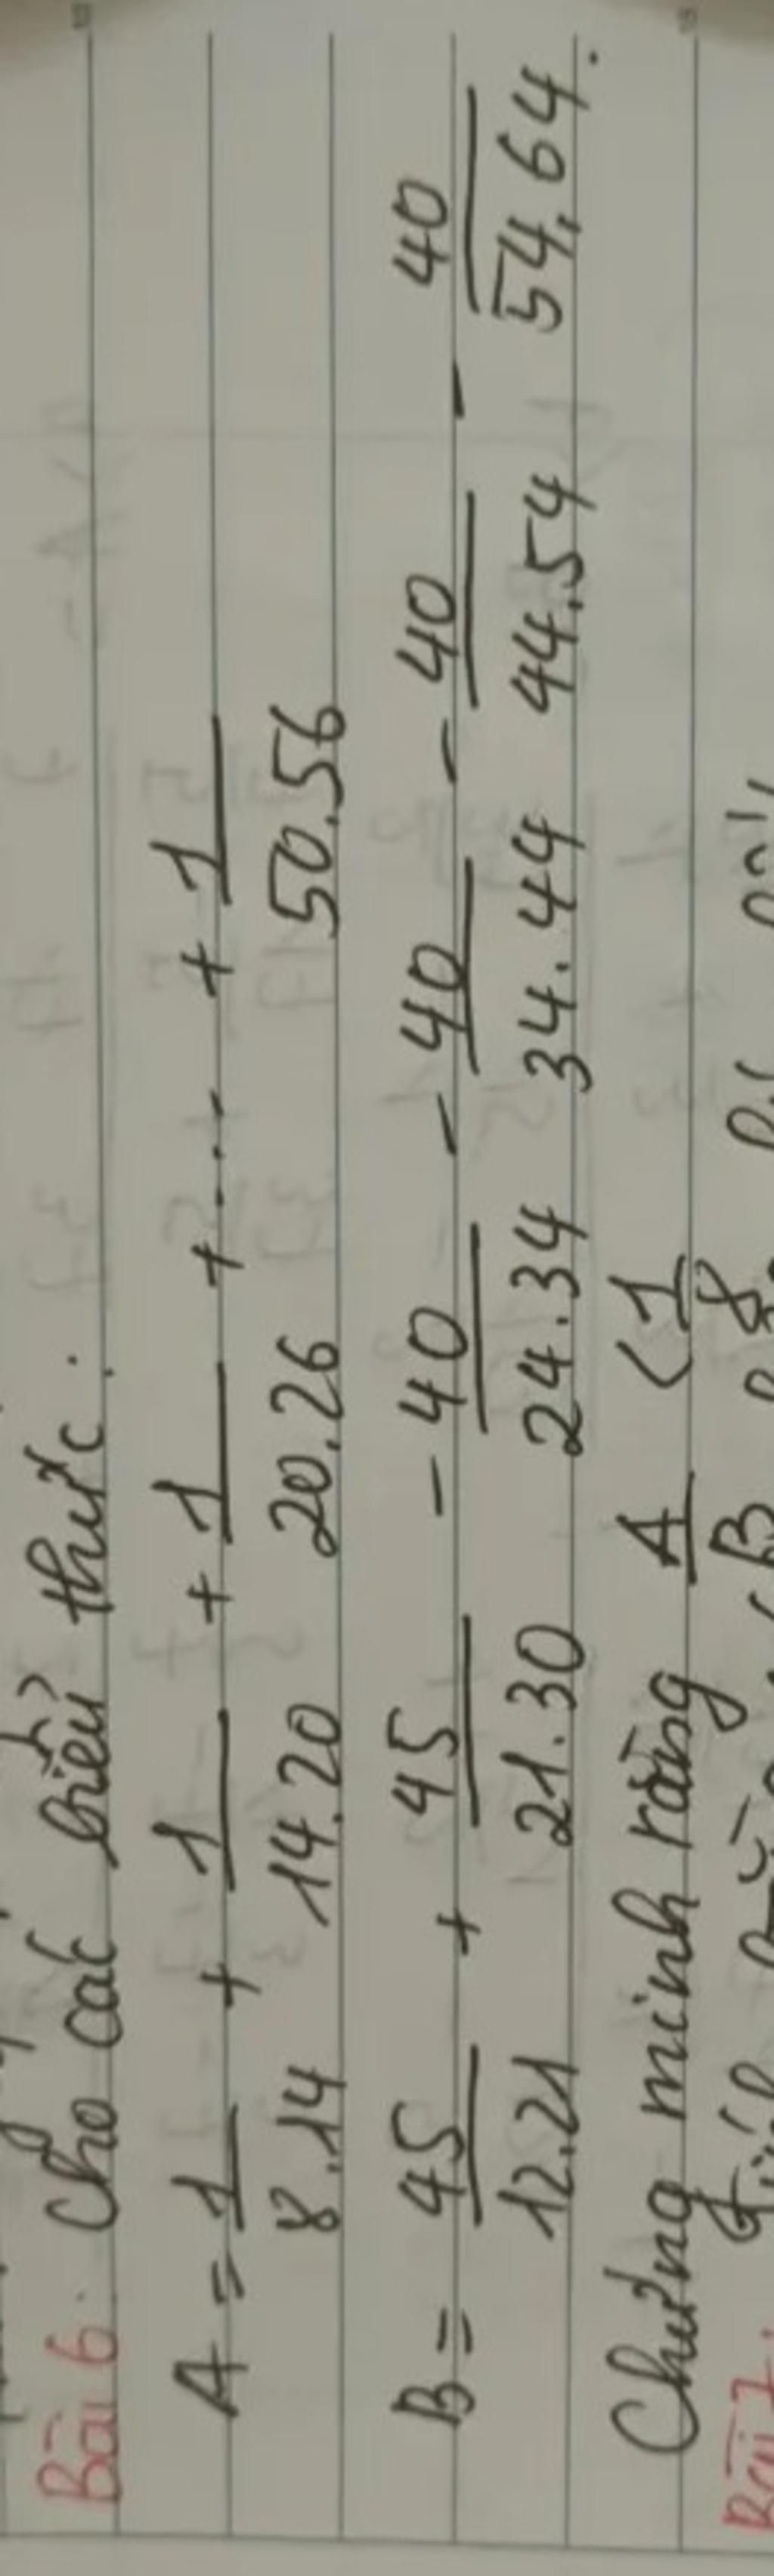 Bài 6. Cho các biểu thức:
A = 1/8.14 + 1/14.20 + 1/20.26 + .... + 1/50.56
B = 45/12.21 + 45/21.30 - 40/24.34 - 40/34.44 - 40/44.54 - 40/54.64.
Chứng minh rằng A/B < 1/8
Bài 7.